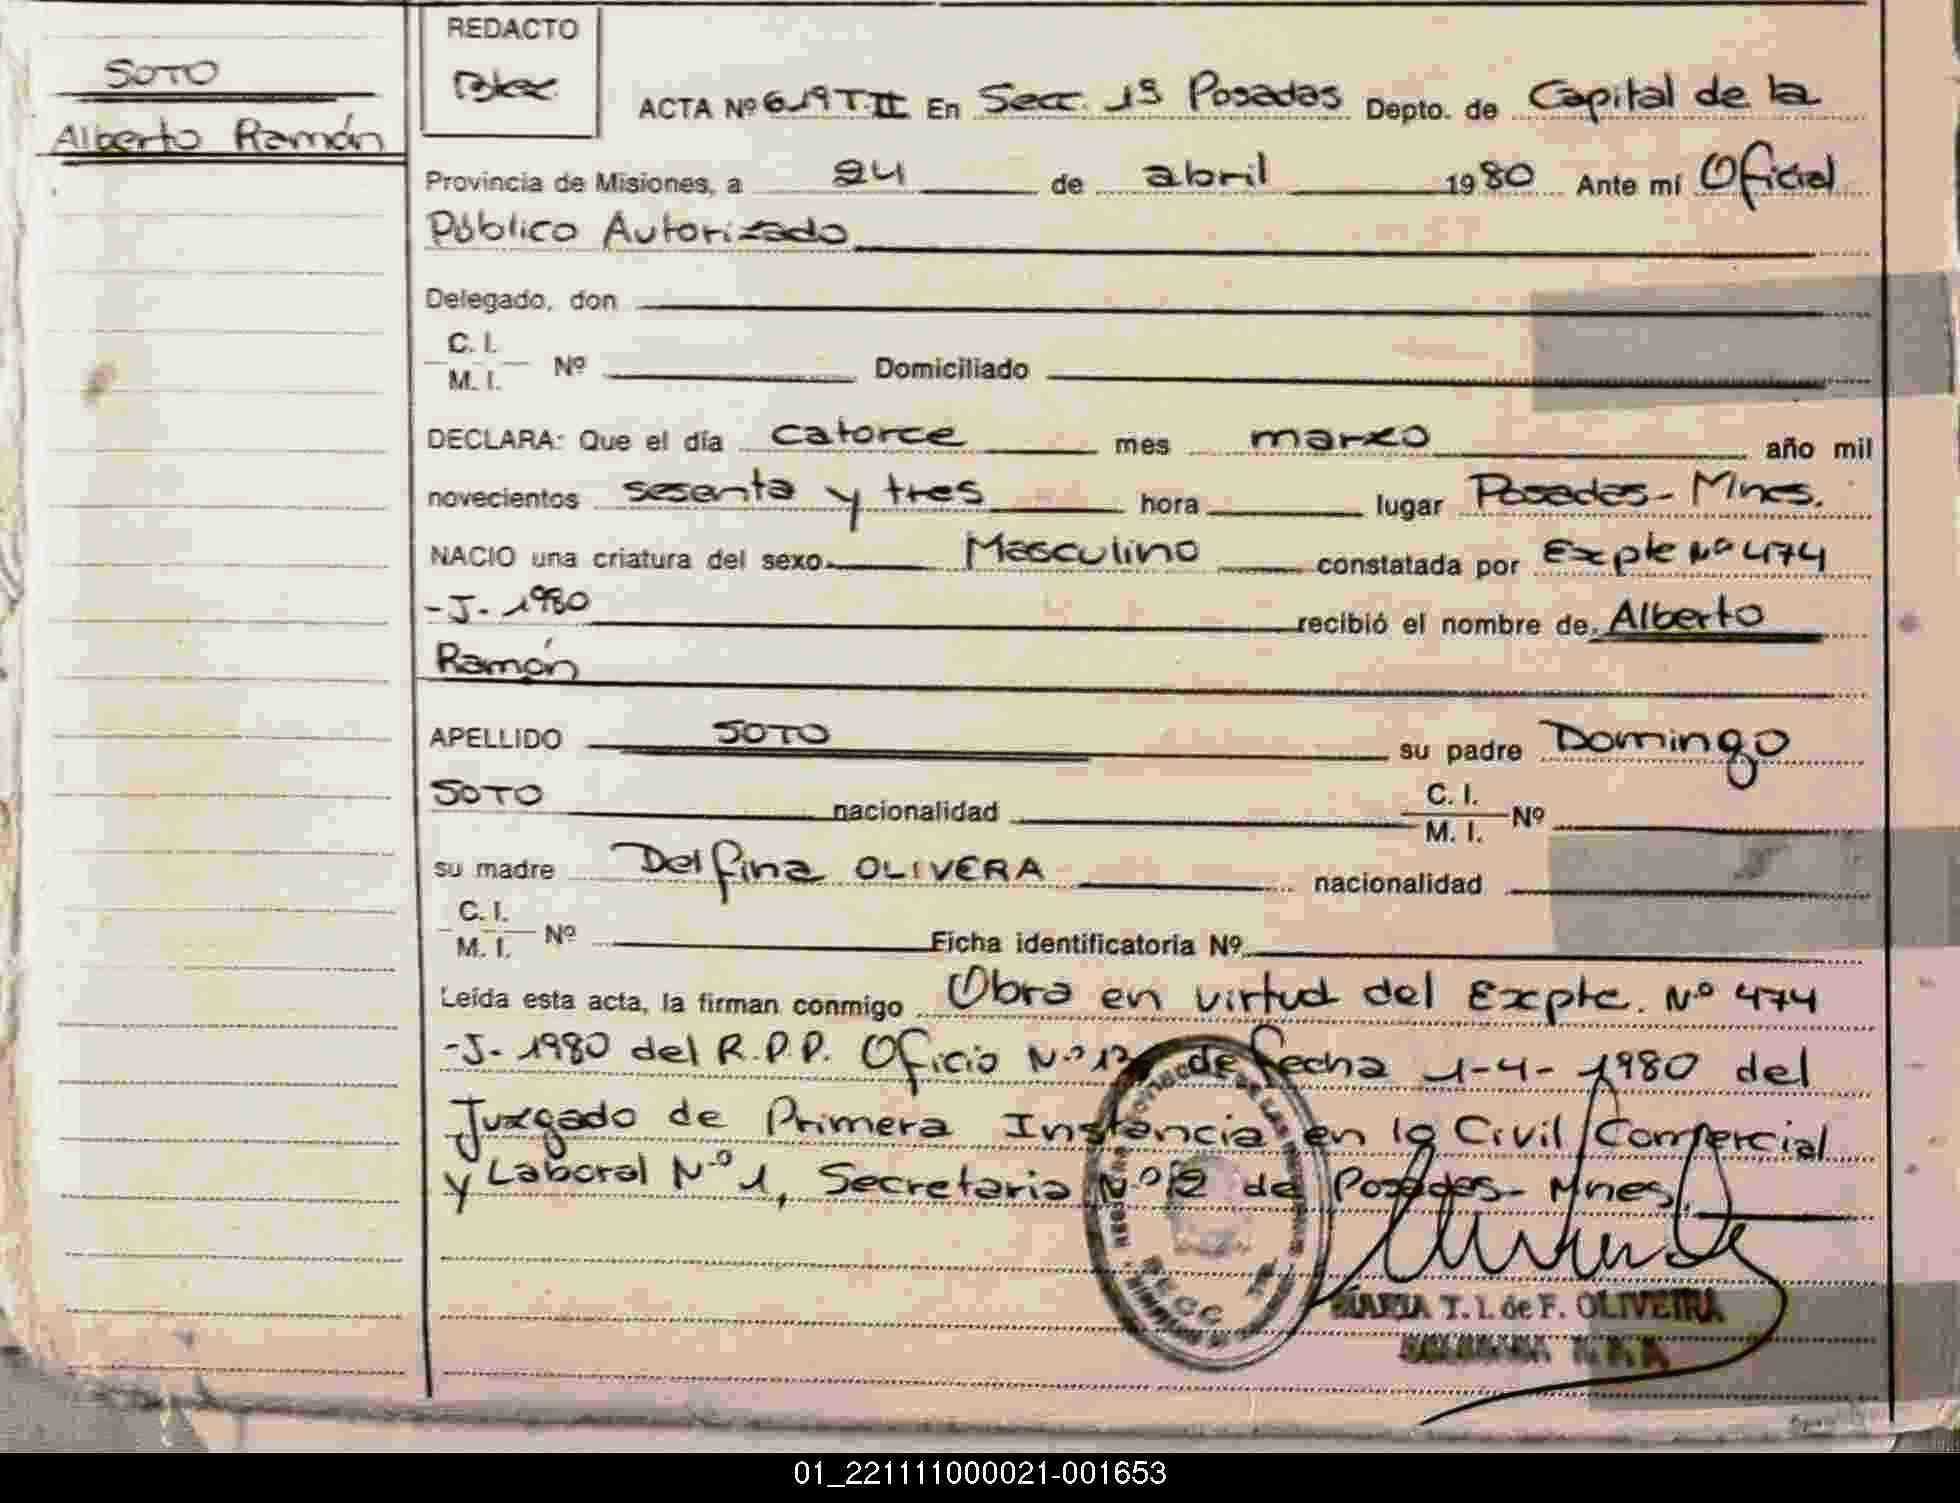 SOTO
Alberto Ramón
REDACTO
ACTA Nº 619 T. II En Secc. 1ª Posadas Depto. de Capital de la
Provincia de Misiones, a 24 de abril 1980 Ante mí Oficial
Público Autorizado
Delegado, don
C. I.
M. I. Nº Domiciliado
DECLARA: Que el día catorce mes marzo año mil
novecientos sesenta y tres hora lugar Posadas - Mnes.
NACIO una criatura del sexo Masculino constatada por Expte Nº 474
-J- 1980 recibió el nombre de Alberto
Ramón
APELLIDO SOTO su padre Domingo
SOTO nacionalidad C. I.
M. I. Nº
su madre Delfina OLIVERA nacionalidad
C. I.
M. I. Nº Ficha identificatoria Nº
Leída esta acta, la firman conmigo Obra en virtud del Expte. Nº 474
-J- 1980 del R.P.P. Oficio Nº de fecha 1-4-1980 del
Juzgado de Primera Instancia en lo Civil Comercial
y Laboral Nº 1, Secretaria Nº 2 de Posadas - Mnes.
SECC
MARIA T. I. de F. OLIVEIRA
01_221111000021-001653